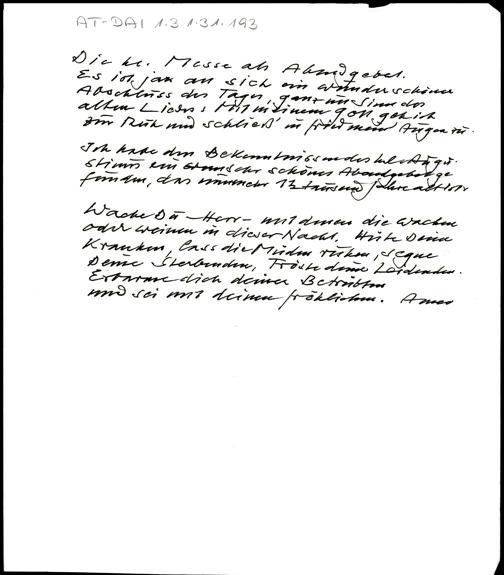 AT-DAI 1.3.1.31.193
Die hl. Messe als Abendgebet.
Es ist ja an sich ein wunderschöner
Abschluss des Tages, ganz im Sinn des
alten Liedes: Mit meinem Gott geh ich
zur Ruh und schließ' in Fried mein Augen zu.
Ich habe den Bekenntnissen des hl. Augu-
stinus ein sehr schönes Abendgebet ge-
funden, das nunmehr 1½ tausend Jahre alt ist
Wache Du – Herr – mit denen die wachen
oder weinen in dieser Nacht. Hüte Deine
Kranken, lass die Müden ruhen, segne
Deine Sterbenden, Tröste deine Leidenden.
Erbarme dich deiner Betrübten
und sei mit deinen Fröhlichen. Amen